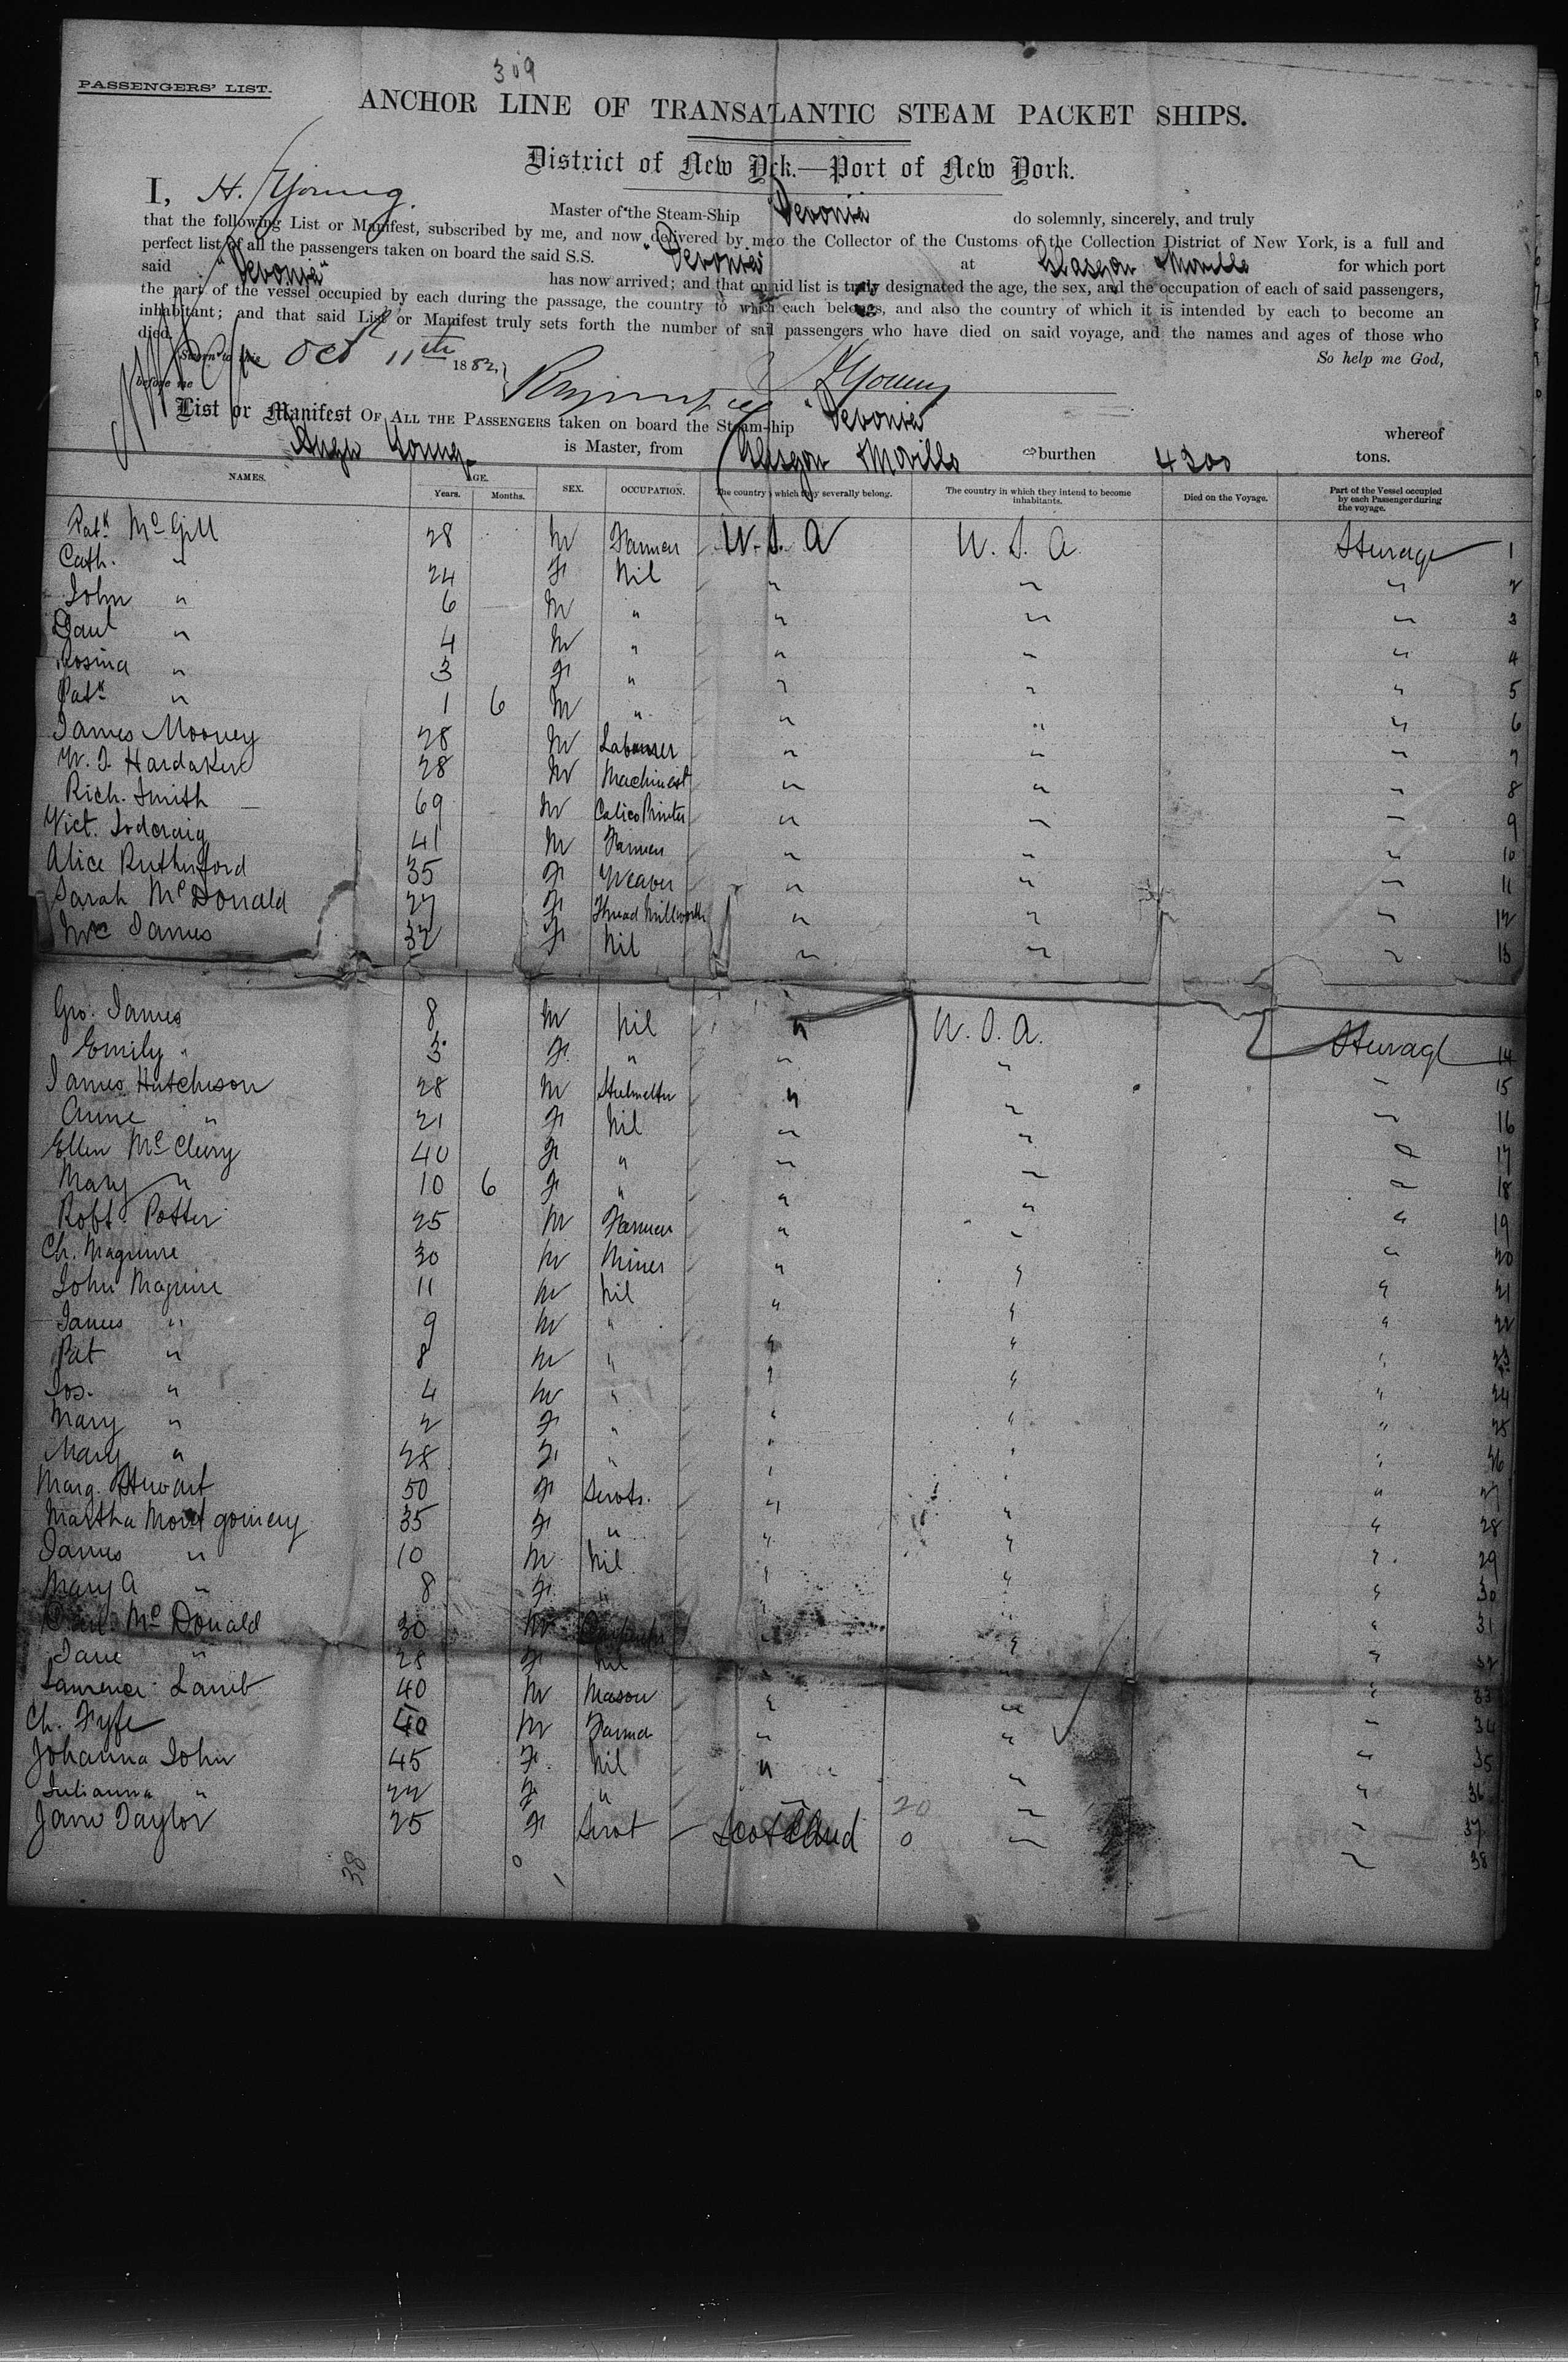 309
PASSENGERS' LIST.
ANCHOR LINE OF TRANSATLANTIC STEAM PACKET SHIPS.
District of New York.—Port of New York.
I, H. Young. Master of the Steam-Ship "Devonia do solemnly, sincerely, and truly
that the following List or Manifest, subscribed by me, and now delivered by me to the Collector of the Customs of the Collection District of New York, is a full and
perfect list of all the passengers taken on board the said S.S. "Devonia" at Glasgow Moville for which port
said "Devonia" has now arrived; and that on said list is truly designated the age, the sex, and the occupation of each of said passengers,
the part of the vessel occupied by each during the passage, the country to which each belongs, and also the country of which it is intended by each to become an
inhabitant; and that said List or Manifest truly sets forth the number of said passengers who have died on said voyage, and the names and ages of those who
died. So help me God,
Sworn to this Oct 11th 1882, H Young
before me
List or Manifest OF ALL THE PASSENGERS taken on board the Steam-ship "Devonia" whereof
Hugh Young is Master, from Glasgow Moville burthen 4200 tons.
NAMES. AGE. Years. Months. SEX. OCCUPATION. The country to which they severally belong. The country in which they intend to become inhabitants. Died on the Voyage. Part of the Vessel occupied by each Passenger during the voyage.
Patk McGill 28 M Farmer U.S.A U.S.A. Steerage 1
Cath. " 24 F Nil " " " 2
John " 6 M " " " " 3
" 4 M " " " " 4
Rosina " 3 F " " " " 5
Patk " 1 6 M " " " " 6
James Mooney 28 M Labourer " " " 7
W. J. Hardaker 28 M Machinist " " " 8
Rich. Smith 69 M Calico Printer " " " 9
Vict. 41 M Farmer " " " 10
Alice Rutherford 35 F Weaver " " " 11
Sarah McDonald 27 F Thread Millworker " " " 12
Mrs James 32 F Nil " " " 13
Geo. James 8 M Nil " U.S.A. Steerage 14
Emily " 3 F " " " " 15
James Hutcheson 28 M Steelmelter " " " 16
Anne " 21 F Nil " " " 17
Ellen McCleery 40 F " " " " 18
Mary " 10 6 F " " " " 19
Robt. Potter 25 M Farmer " " " 20
Ch. Maguire 30 M Miner " " " 21
John Maguire 11 M Nil " " " 22
James " 9 M " " " " 23
Pat " 8 M " " " " 24
Jos. " 4 M " " " " 25
Mary " 2 F " " " " 26
Mary " 28 F " " " " 27
Marg. Stewart 50 F Servts. " " " 28
Martha Montgomery 35 F " " " " 29
James " 10 M Nil " " " 30
Mary A " 8 F " " " " 31
McDonald 30 M " " " 32
Jane " 28 F Nil " " " 33
Lawrence Lamb 40 M Mason " " " 34
Ch. Fyfe 40 M Farmer " " " 35
Johanna John 45 F Nil " " " 36
Julianna " 22 F " " " " 37
Jane Taylor 25 F Servt Scotland " " 38
38 0 1 20 0